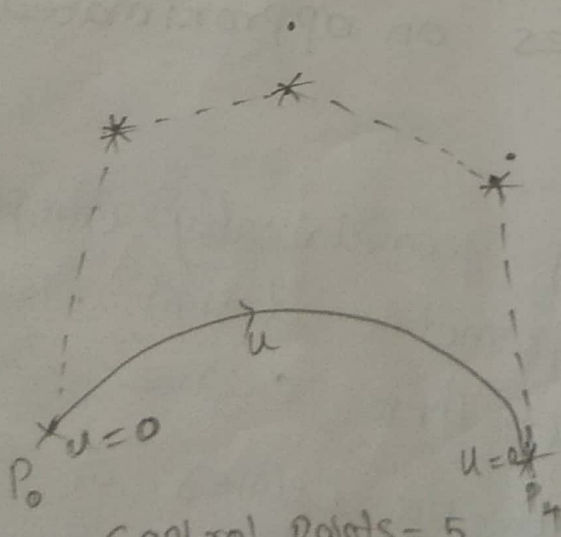 u
u=0
P₀
u=
P₄
Control Points - 5